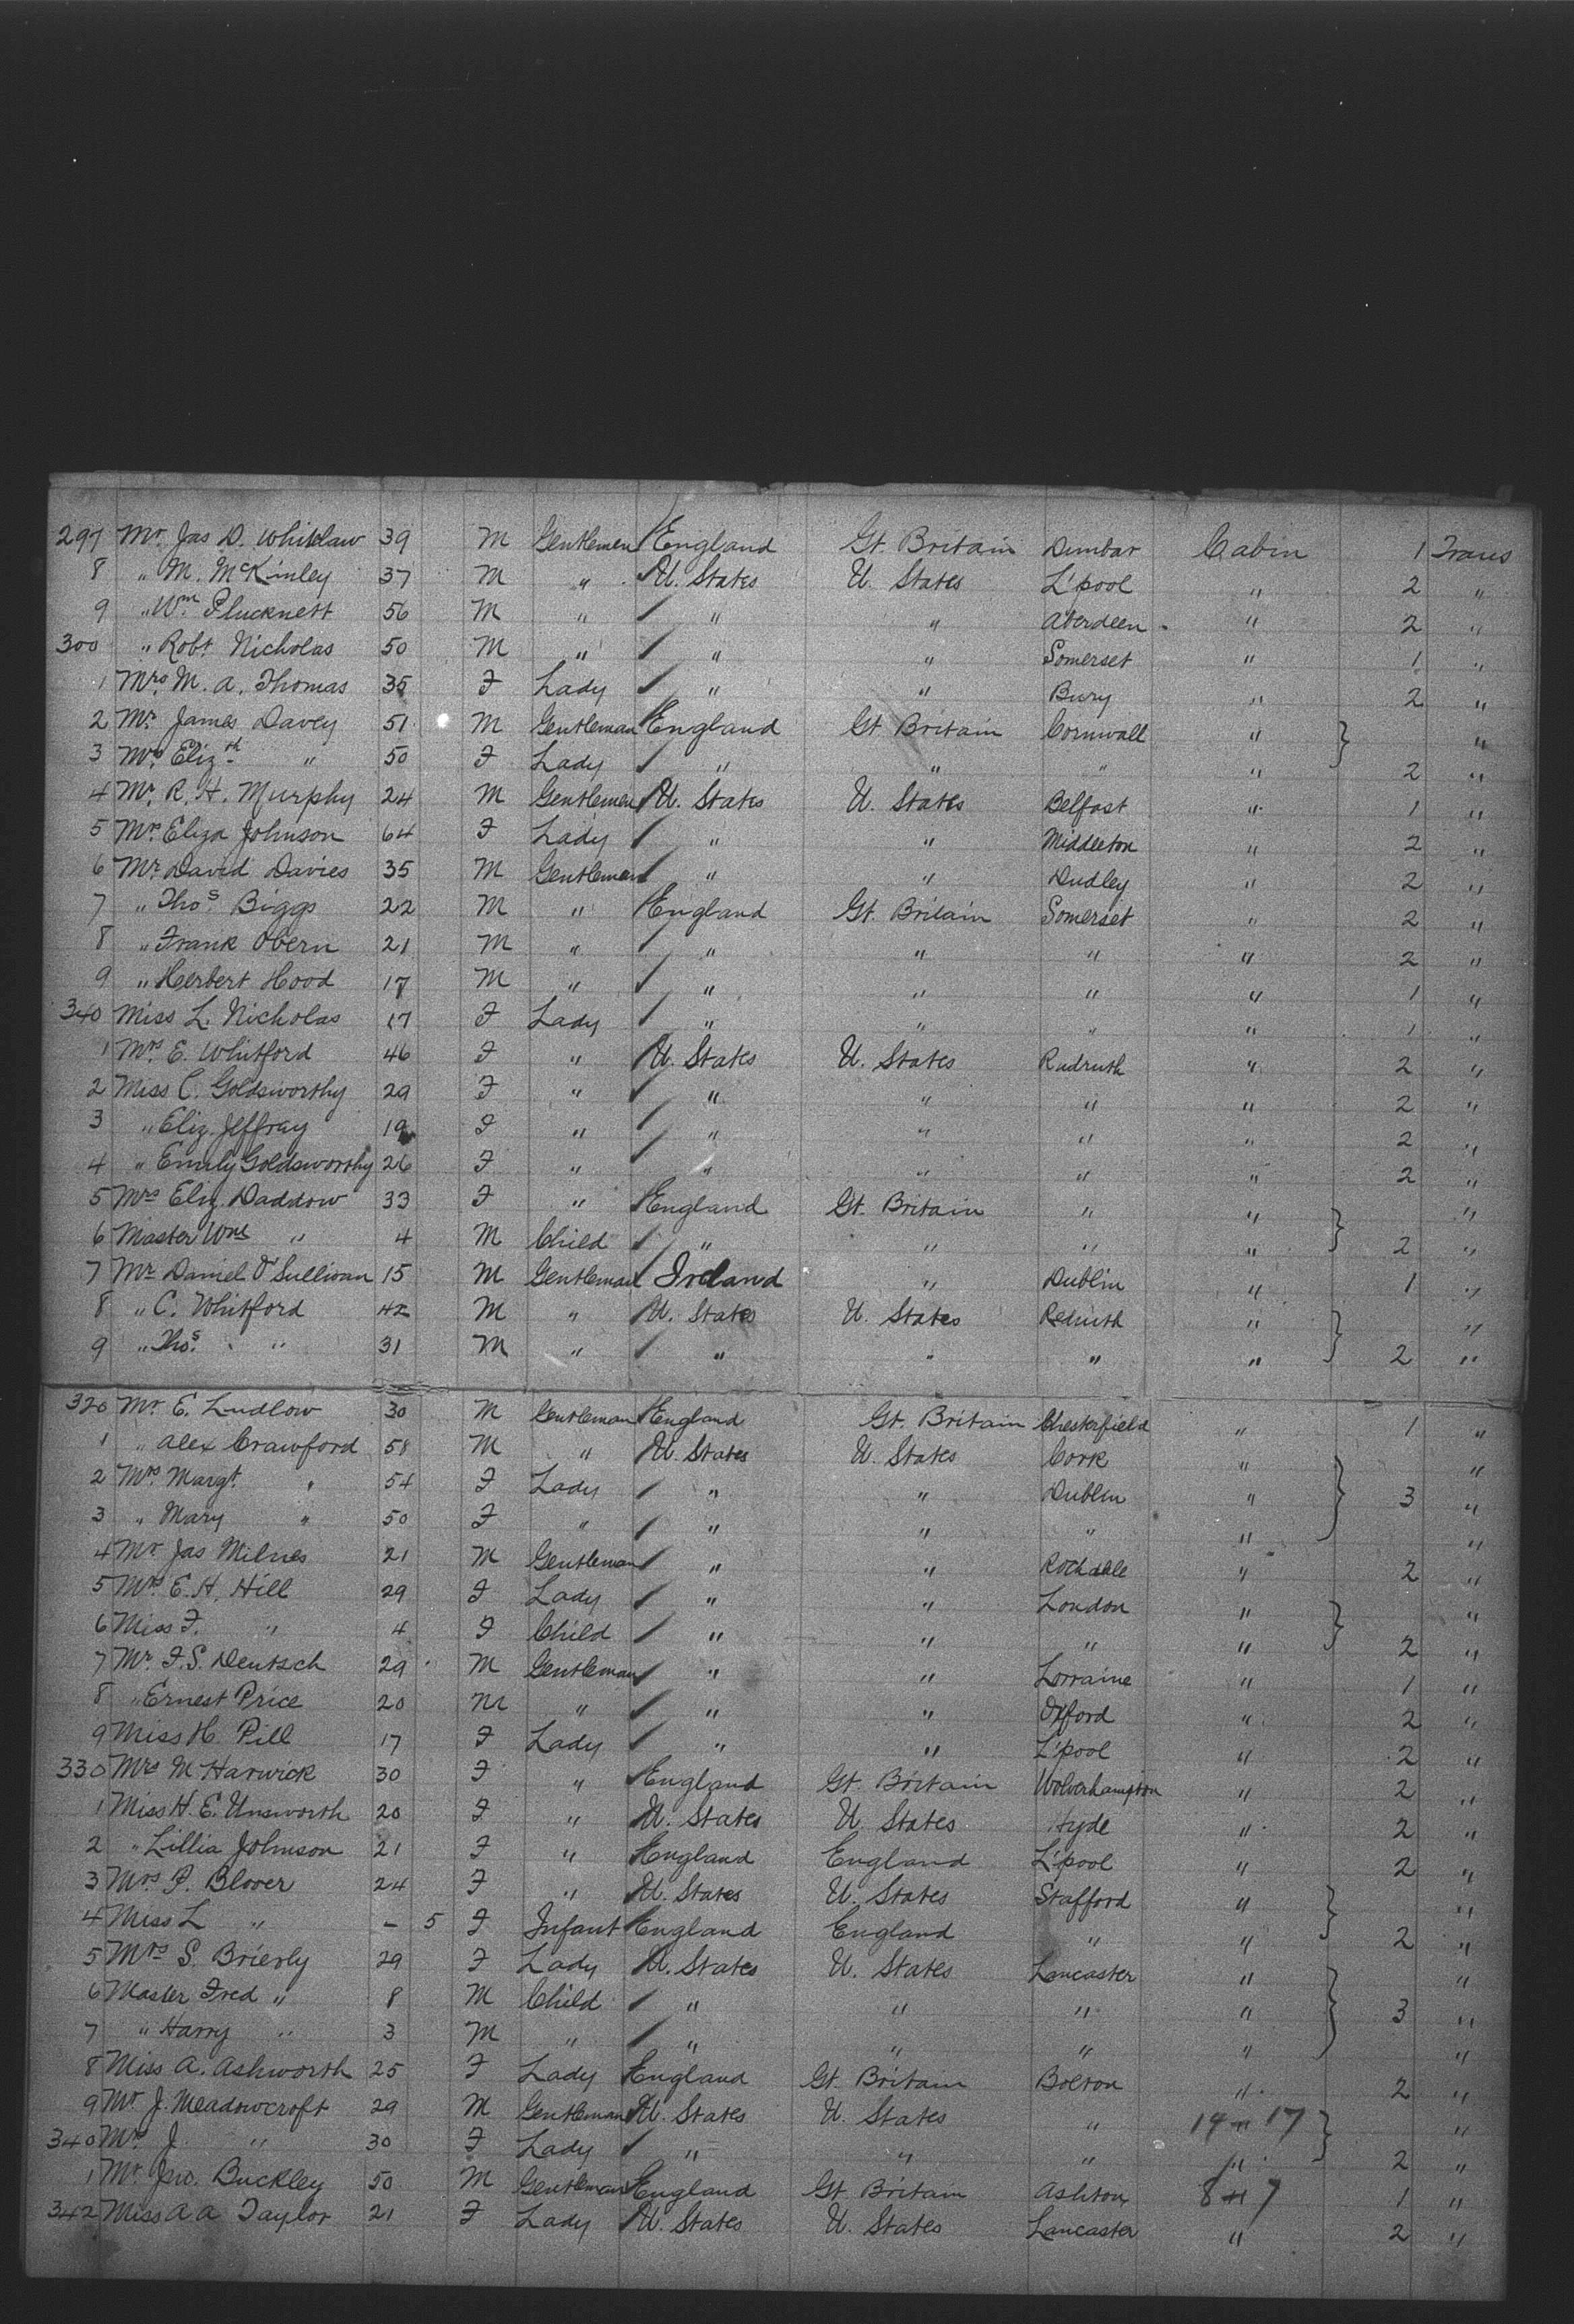 297 Mr. Jas D. Whitelaw 39 M Gentlemen England Gt. Britain Dunbar Cabin 1 Trans
8 " M. McKinley 37 M " U. States U. States L'pool " 2 "
9 " Wm Plucknett 56 M " " " Aberdeen " 2 "
300 " Robt. Nicholas 50 M " " " Somerset " 1 "
1 Mrs. M. A. Thomas 35 F Lady " " Bury " 2 "
2 Mr. James Davey 51 M Gentleman England Gt Britain Cornwall " "
3 Mrs. Elizth " 50 F Lady " " " " 2 "
4 Mr. R. H. Murphy 24 M Gentlemen U. States U. States Belfast " 1 "
5 Mrs Eliza Johnson 64 F Lady " " Middleton " 2 "
6 Mr. David Davies 35 M Gentlemen " " Dudley " 2 "
7 " Thos. Biggs 22 M " England Gt. Britain Somerset " 2 "
8 " Frank Obern 21 M " " " " " 2 "
9 " Herbert Hood 17 M " " " " " 1 "
340 Miss L. Nicholas 17 F Lady " " " " 1 "
1 Mrs E. Whitford 46 F " U. States U. States Rudruth " 2 "
2 Miss C. Goldsworthy 29 F " " " " " 2 "
3 " Eliz. Jeffray 19 F " " " " " 2 "
4 " Emily Goldsworthy 26 F " " " " " 2 "
5 Mrs Eliz. Daddow 33 F " England Gt. Britain " " "
6 Master Wm " 4 M Child " " " " 2 "
7 Mr Daniel O'Sullivan 15 M Gentleman Ireland " Dublin " 1 "
8 " C. Whitford 42 M " U. States U. States Redruth " "
9 " Thos. " 31 M " " " " " 2 "
320 Mr. E. Ludlow 30 M Gentleman England Gt. Britain Chesterfield " 1 "
1 " Alex Crawford 58 M " U. States U. States Cork " "
2 Mrs Margt. " 54 F Lady " " Dublin " 3 "
3 " Mary " 50 F " " " " " "
4 Mr Jas Milnes 21 M Gentleman " " Rochdale " 2 "
5 Mrs. E. H. Hill 29 F Lady " " London " "
6 Miss F. " 4 F Child " " " " 2 "
7 Mr. F. S. Deutsch 29 M Gentleman " " Lorraine " 1 "
8 " Ernest Price 20 M " " " Oxford " 2 "
9 Miss H. Pill 17 F Lady " " L'pool " 2 "
330 Mrs M Harwick 30 F " England Gt. Britain Wolverhampton " 2 "
1 Miss H. E. Unsworth 20 F " U. States U. States Hyde " 2 "
2 " Lillia Johnson 21 F " England England L'pool " 2 "
3 Mrs. P. Blover 24 F " U. States U. States Stafford " "
4 Miss L " - 5 F Infant England England " " 2 "
5 Mrs S. Brierly 29 F Lady U. States U. States Lancaster " "
6 Master Fred " 8 M Child " " " " 3 "
7 " Harry " 3 M " " " " " "
8 Miss A. Ashworth 25 F Lady England Gt. Britain Bolton " 2 "
9 Mr J. Meadowcroft 29 M Gentleman U. States U. States " 17 "
340 Mrs. J. " 30 F Lady " " " " 2 "
1 Mr. Jno. Buckley 50 M Gentleman England Gt. Britain Ashton 7 1 "
342 Miss A A Taylor 21 F Lady U. States U. States Lancaster " 2 "